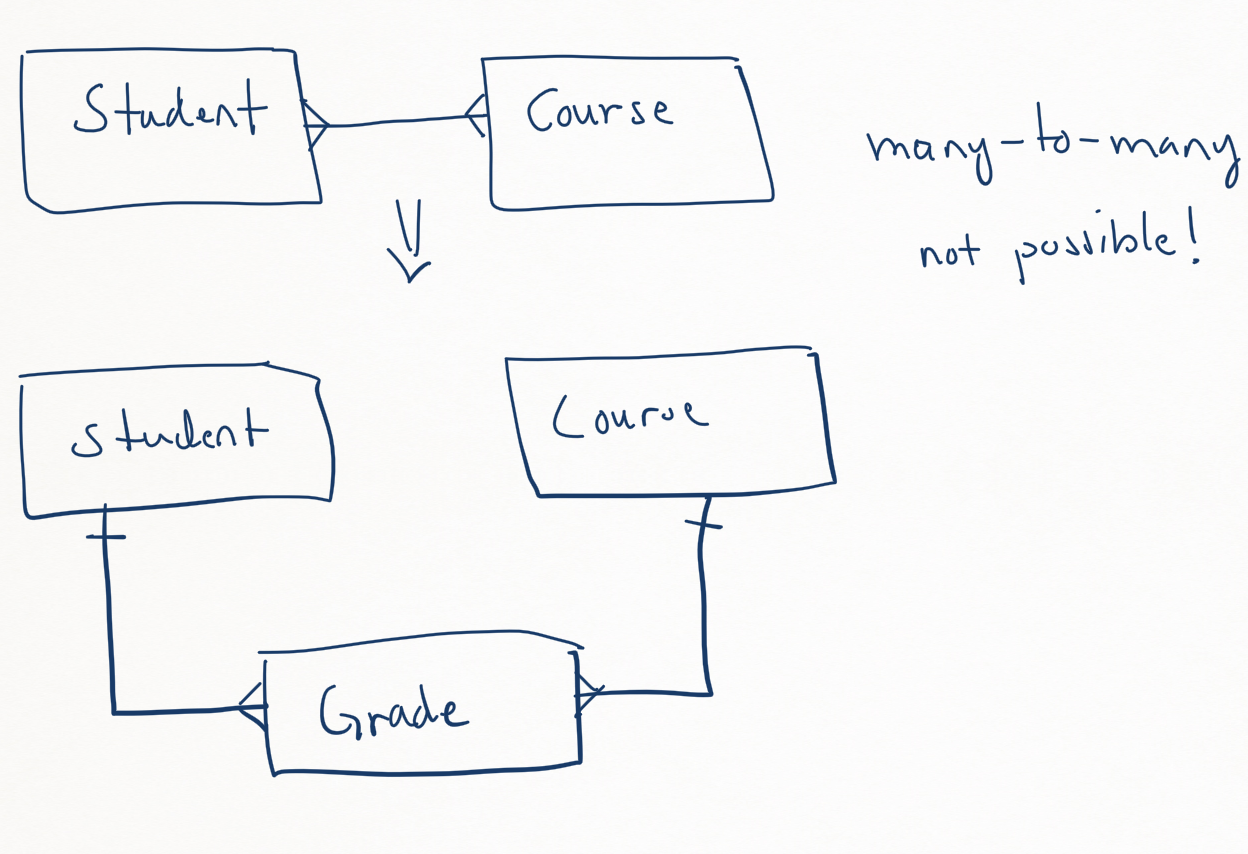 Student
Course
many-to-many
not possible!
Student
Course
Grade